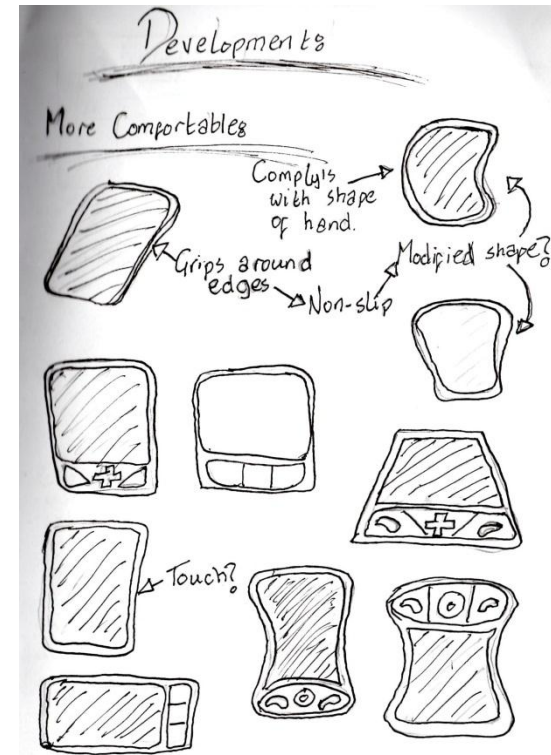 Developments
More Comfortables
Complys
with shape
of hand.
Grips around
edges
Non-slip
Modified shape?
Touch?